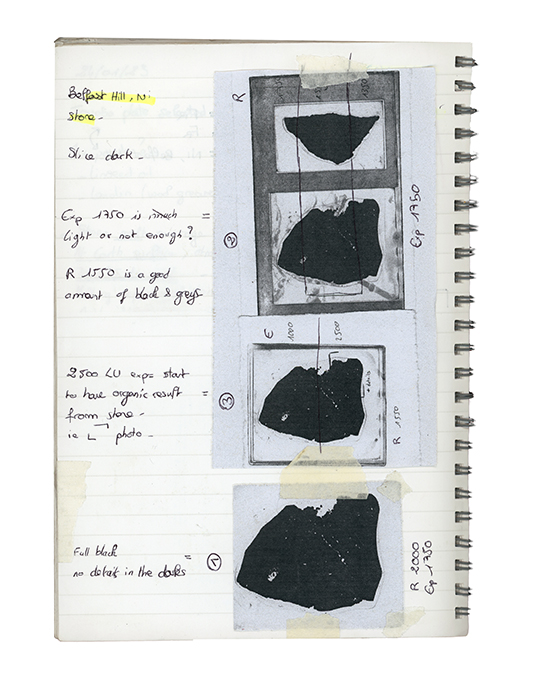 Belfast Hill, Ni
stone -
Slice dark -
Exp 1750 is much =
light or not enough?
R 1550 is a good
amount of black & greys
2500 LU exp = start
to have organic result =
from stone -
ie L ⌝ photo -
Full black =
no details in the darks
R
②
Exp 1750
E
1000
2500
③
R 1550
①
R 2000
Exp 1750